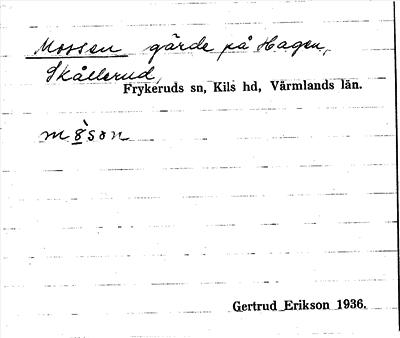 Mossen gärde på Hagen,
Skållerud,
Frykeruds sn, Kils hd, Värmlands län.
Gertrud Erikson 1936.